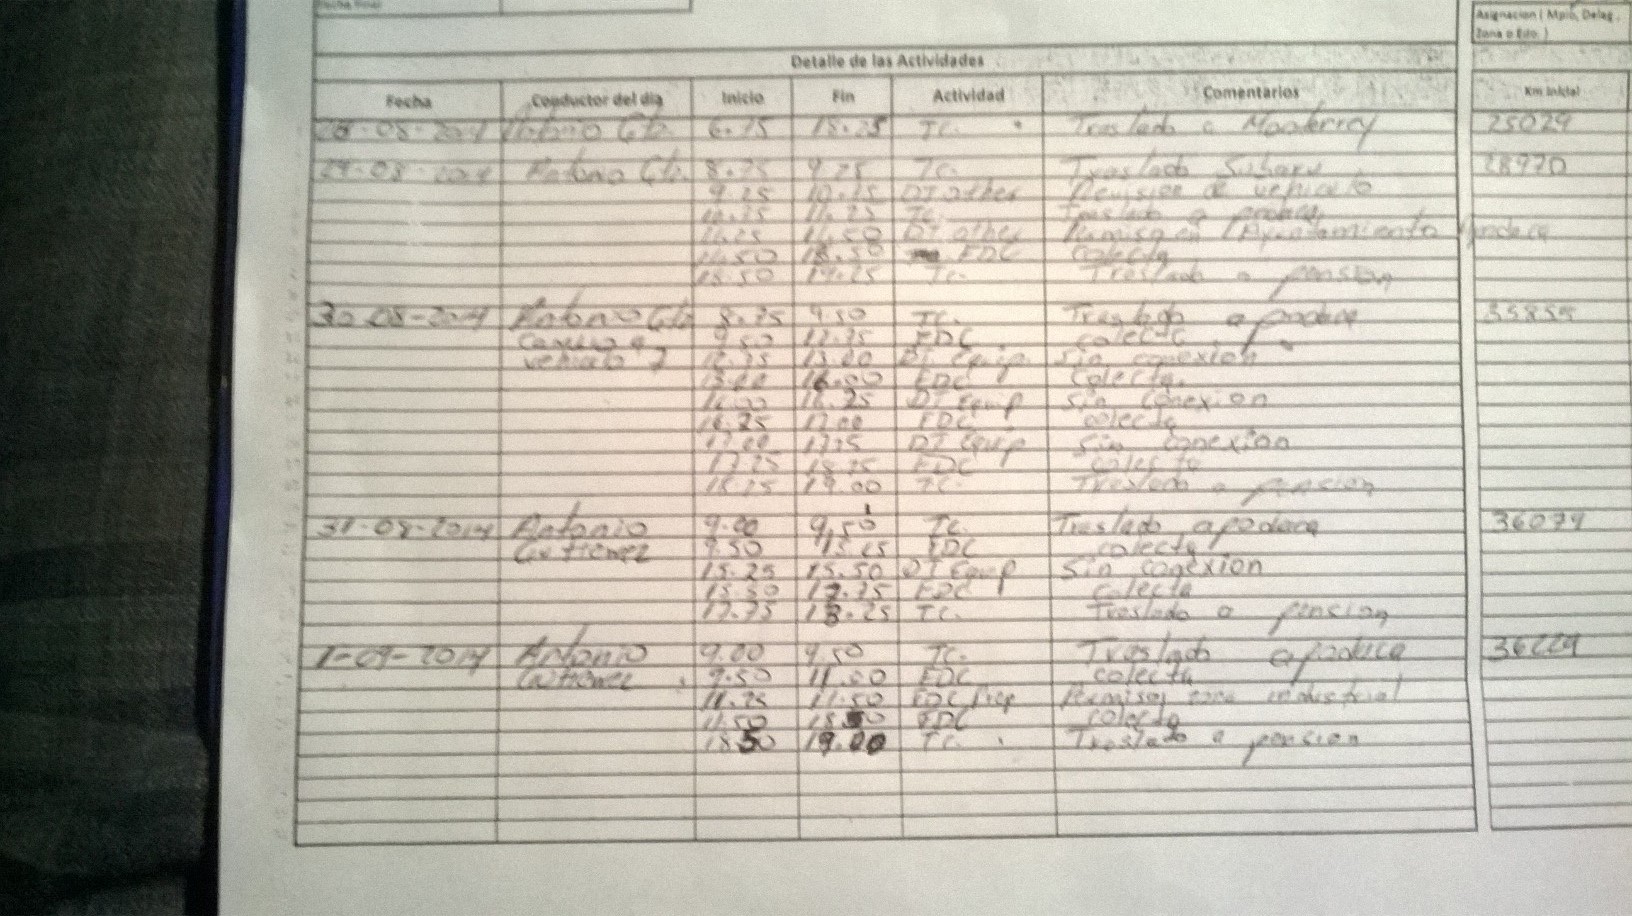 Fecha Final
Asignacion ( Mpio, Deleg.
Zona o Edo. )
Detalle de las Actividades
Fecha Conductor del dia Inicio Fin Actividad Comentarios Km Inicial
-08-2014 Antonio Gtz. 6.75 18.25 TC. Traslado a Monterrey 25029
29-08-2014 Antonio Gtz. 8.75 9.25 TC. Traslado Subaru 28970
9.25 10.75 DT other Revision de vehiculo
11.25 TC. Traslado a
11.25 11.50 DT other Permiso en Ayuntamiento Apodaca
11.50 18.50 EDC colecta
18.50 19.25 TC. Traslado a pension
30-08-2014 Antonio Gtz 8.75 9.50 TC. Traslado apodaca 35855
9.50 12.75 EDC colecta
vehiculo 7 12.75 13.00 DT Equip. Sin conexion
13.00 16.00 EDC Colecta.
16.00 16.25 DT Equip Sin Conexion
16.25 17.00 EDC colecta
17.00 17.25 DT Equip Sin conexion
17.25 18.25 EDC colecta
18.25 19.00 TC. Traslado a pension
31-08-2014 Antonio 9.00 9.50 TC. Traslado apodaca 36079
Gutierrez 9.50 15.25 EDC colecta
15.25 15.50 DT Equip Sin conexion
15.50 17.75 EDC Colecta
17.75 18.25 TC. Traslado a pension
1-09-2014 Antonio 9.00 9.50 TC. Traslado apodaca 36229
Gutierrez 9.50 EDC colecta
11.25 11.50 EDC Prep Permisos zona industrial
11.50 18.50 EDC colecta
18.50 19.00 TC. Traslado a pension